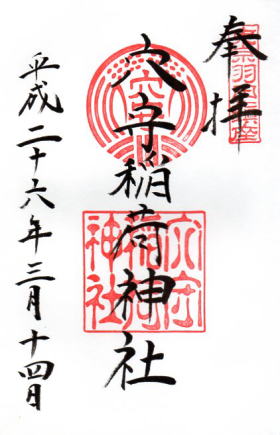 奉拝
穴守稲荷神社
平成二十六年三月十四日
穴守
稲荷
神社